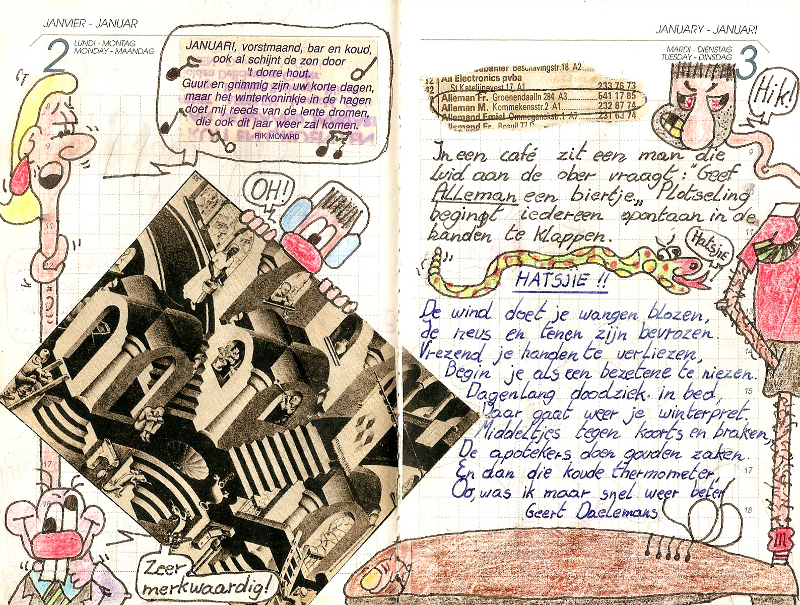 JANVIER - JANUAR
2 LUNDI - MONTAG
MONDAY - MAANDAG
JANUARI, vorstmaand, bar en koud,
ook al schijnt de zon door
't dorre hout.
Guur en grimmig zijn uw korte dagen,
maar het winterkoninkje in de hagen
doet mij reeds van de lente dromen,
die ook dit jaar weer zal komen.
RIK MONARD
OH!
Zeer
merkwaardig!
JANUARY - JANUARI
MARDI - DIENSTAG
TUESDAY - DINSDAG
3
Beschavingstr.18 A2
All Electronics pvba
St Katelijnevest 17 A1 233 76 73
Alleman Fr. Groenendaalln 284 A3 541 17 85
Alleman M. Kommekensstr.2 A1 232 87 74
Allemand Emiel Ommeganckstr.1 A7 231 63 74
Hik!
In een café zit een man die
luid aan de ober vraagt: "Geef
ALLEMAN een biertje„ Plotseling
begint iedereen spontaan in de
handen te klappen.
Hatsjie
HATSJIE !!
De wind doet je wangen blozen,
Je neus en tenen zijn bevrozen
Vrezend je handen te verliezen,
Begin je als een bezetene te niezen.
Dagenlang doodziek in bed,
Daar gaat weer je winterpret.
Middeltjes tegen koorts en braken,
De apotekers doen gouden zaken.
En dan die koude thermometer,
Oo, was ik maar snel weer beter
Geert Daelemans
8
9
10
11
14
15
17
18